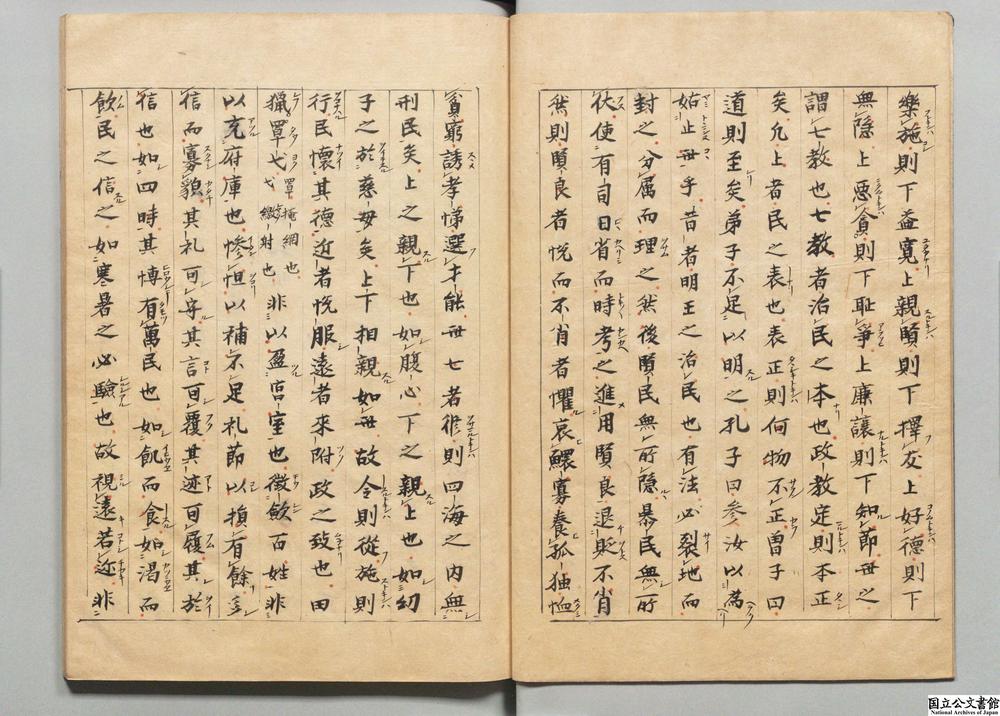 樂施則下益寬上親賢則下擇友上好德則下
無隱上惡貪則下恥爭上廉讓則下知節世之
謂七教也七教者治民之本也政教定則本正
矣凢上者民之表也表正則何物不正曽子曰
道則至矣弟子不足以明之孔子曰参汝以為
姑止世乎昔者明王之治民也有法必裂地而
封之分属而理之然後賢民無所隱暴民無所
伏使有司日省而時考之進用賢良退貶不肖
然則賢良者悅而不肖者懼哀鰥寡養孤独恤
貧窮誘孝悌選才能世七者修則四海之内無
刑民矣上之親下也如腹心下之親上也如幼
子之於慈母矣上下相親如世故令則從施則
行民懷其德近者悅服遠者來附政之致也田
獵罩弋罩掩網也弋繳射也非以盈宮室也徴斂百姓非
以充府庫也慘怛以補不足礼節以損有餘多
信而寡貌其礼可守其言可覆其迹可履其於
信也如四時其博有萬民也如飢而食如渴而
飲民之信之如寒暑之必驗也故視遠若近非
国立公文書館
National Archives of Japan